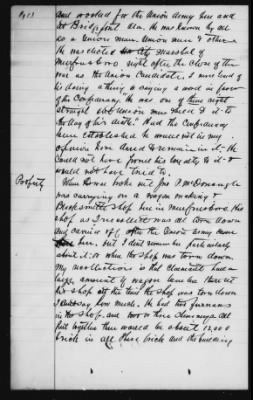 Pg 13
and worked for the Union Army here and
at Bridgeport Ala. He was known by all
as a Union man. Union men & others
He was elected City Marshal of
Murfreesboro right after the close of the
war as the Union Candidate. I never heard
of his doing a thing or saying a word in favor
of the Confederacy. He was one of these
straight out Union men and stuck it to
the day of his death. Had the Confederacy
been established he would not in my
opinion have dared to remain in it. He
could not have proved his loyalty to it &
would not have tried to.
Property
When the war broke out Jas P. McDonough
was carrying on a wagon making &
Blacksmith shop here in Murfreesboro. His
shop as I recollect was all torn down
and carried off after the Union army came
here, but I don't remember particularly
about it or when the shop was torn down.
My recollection is that claimant had a
large amount of wagon lumber there at
his shop at the time the shop was torn down
I can't say how much. He had two furnaces
in the shop and two or three chimneys all
put together there would be about 12,000
brick in all these brick and the building